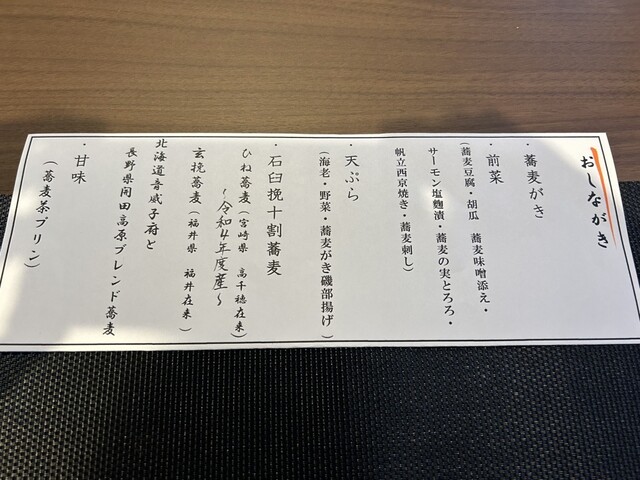 おしながき
・蕎麦がき
・前菜
(蕎麦豆腐・胡瓜 蕎麦味噌添え・
サーモン塩麹漬・蕎麦の実とろろ・
帆立西京焼き・蕎麦刺し)
・天ぷら
(海老・野菜・蕎麦がき磯部揚げ)
・石臼挽十割蕎麦
ひね蕎麦(宮崎県 高千穂在来)
~令和4年度産~
玄挽蕎麦(福井県 福井在来)
北海道音威子府と
長野県開田高原ブレンド蕎麦
・甘味
(蕎麦茶プリン)